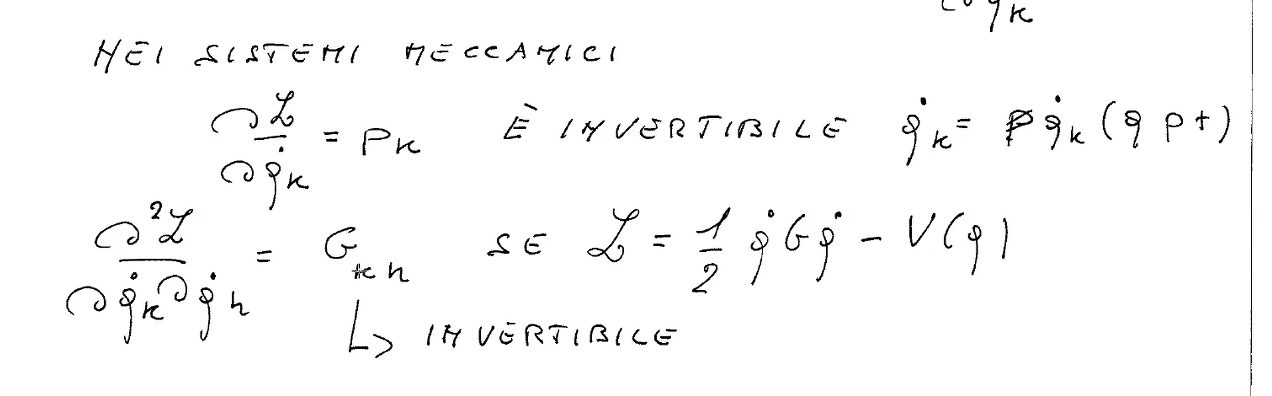 ∂q̇k
NEI SISTEMI MECCANICI
∂ℒ/∂q̇k = pk È INVERTIBILE q̇k = q̇k (q p t)
∂²ℒ/∂q̇k∂q̇h = Gkh SE ℒ = 1/2 q̇Gq̇ - V(q)
↳ INVERTIBILE